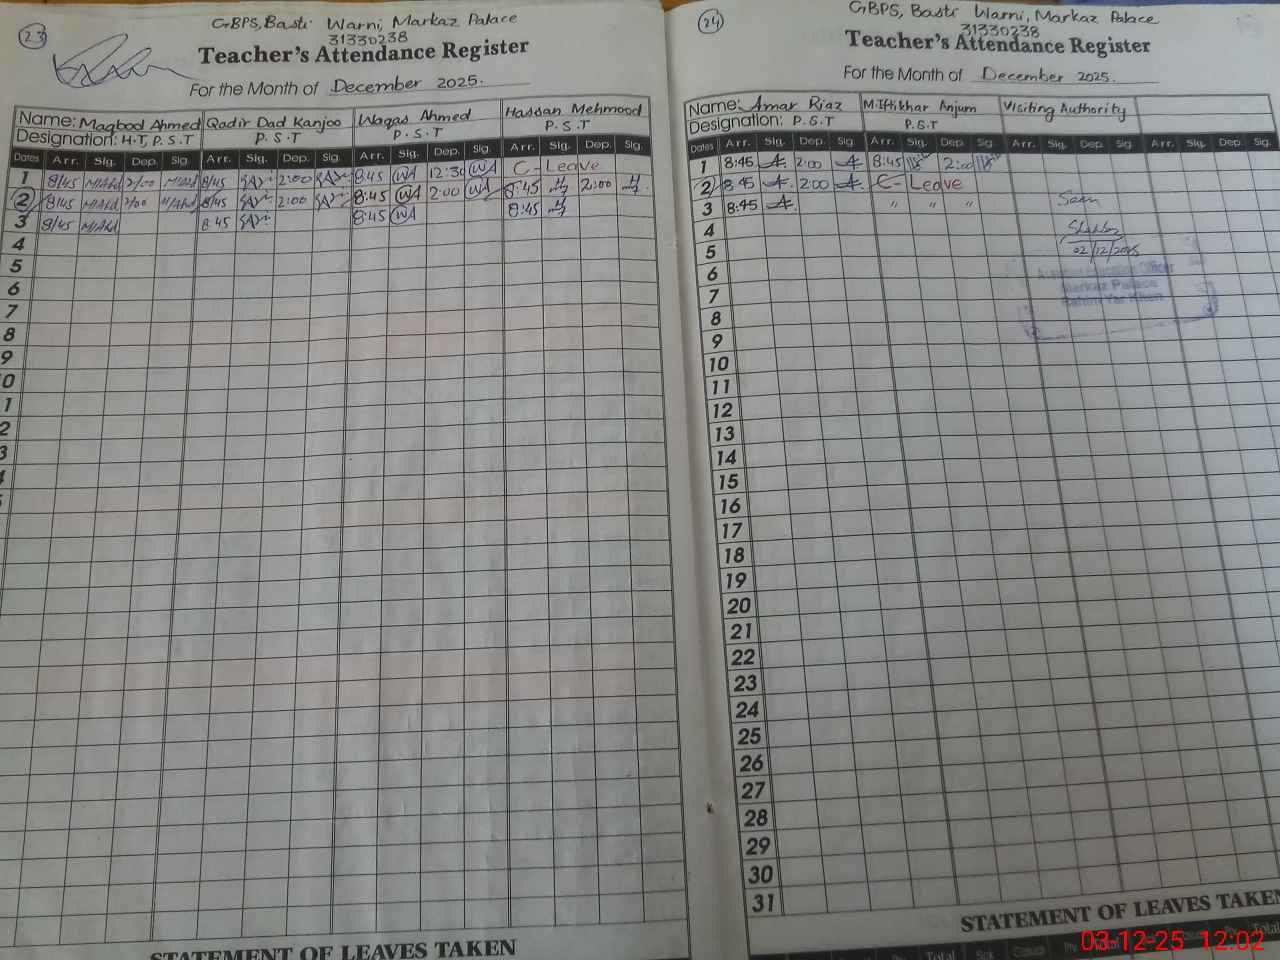 23
GBPS, Basti Warni, Markaz Palace
31330238
Teacher's Attendance Register
For the Month of December 2025.
Name: Maqbod Ahmed Qadir Dad Kanjoo Waqas Ahmed Hassan Mehmood
Designation: H.T, P.S.T P.S.T P.S.T P.S.T
Dates Arr. Sig. Dep. Sig. Arr. Sig. Dep. Sig. Arr. Sig. Dep. Sig. Arr. Sig. Dep. Sig.
1 8/45 2/00 8/45 2:00 8:45 WA 12:30 WA C-Leave
2 8/45 2/00 8/45 2:00 8:45 WA 2:00 WA 8:45 2:00
3 8/45 8:45 8:45 WA 8:45
4
5
6
7
8
9
0
1
2
3
STATEMENT OF LEAVES TAKEN
24
GBPS, Basti Warni, Markaz Palace
31330238
Teacher's Attendance Register
For the Month of December 2025.
Name: Amar Riaz M.Iftikhar Anjum Visiting Authority
Designation: P.S.T P.S.T
Dates Arr. Sig. Dep. Sig. Arr. Sig. Dep. Sig. Arr. Sig. Dep. Sig. Arr. Sig. Dep. Sig.
1 8:45 2:00 8:45 2:00
2 8:45 2:00 C-Leave
3 8:45 " " " Seen
4
5 02/12/2025
6 Officer
7 Markaz Palace
8 Rahim Yar Khan
9
10
11
12
13
14
15
16
17
18
19
20
21
22
23
24
25
26
27
28
29
30
31
STATEMENT OF LEAVES TAKEN
Total Sick Casual Prv. Total
03-12-25 12:02